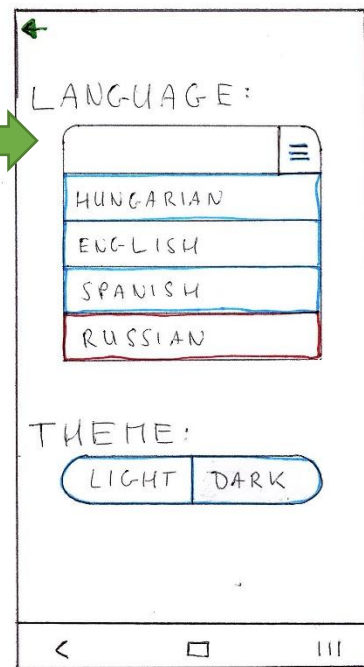 LANGUAGE:
HUNGARIAN
ENGLISH
SPANISH
RUSSIAN
THEME:
LIGHT DARK